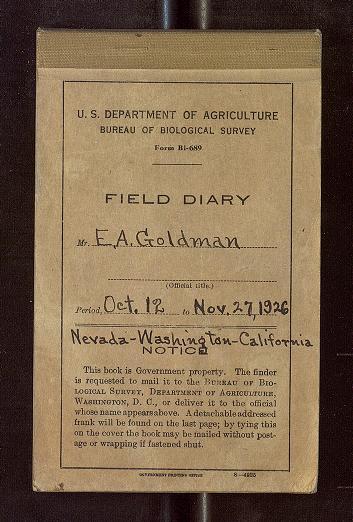 U. S. DEPARTMENT OF AGRICULTURE
BUREAU OF BIOLOGICAL SURVEY
Form Bi-689
FIELD DIARY
Mr. E.A. Goldman
(Official title.)
Period, Oct. 12 to Nov. 27, 1926
Nevada-Washington-California
NOTICE
This book is Government property. The finder
is requested to mail it to the BUREAU OF BIO-
LOGICAL SURVEY, DEPARTMENT OF AGRICULTURE,
WASHINGTON, D. C., or deliver it to the official
whose name appears above. A detachable addressed
frank will be found on the last page; by tying this
on the cover the book may be mailed without post-
age or wrapping if fastened shut.
GOVERNMENT PRINTING OFFICE 8—4925